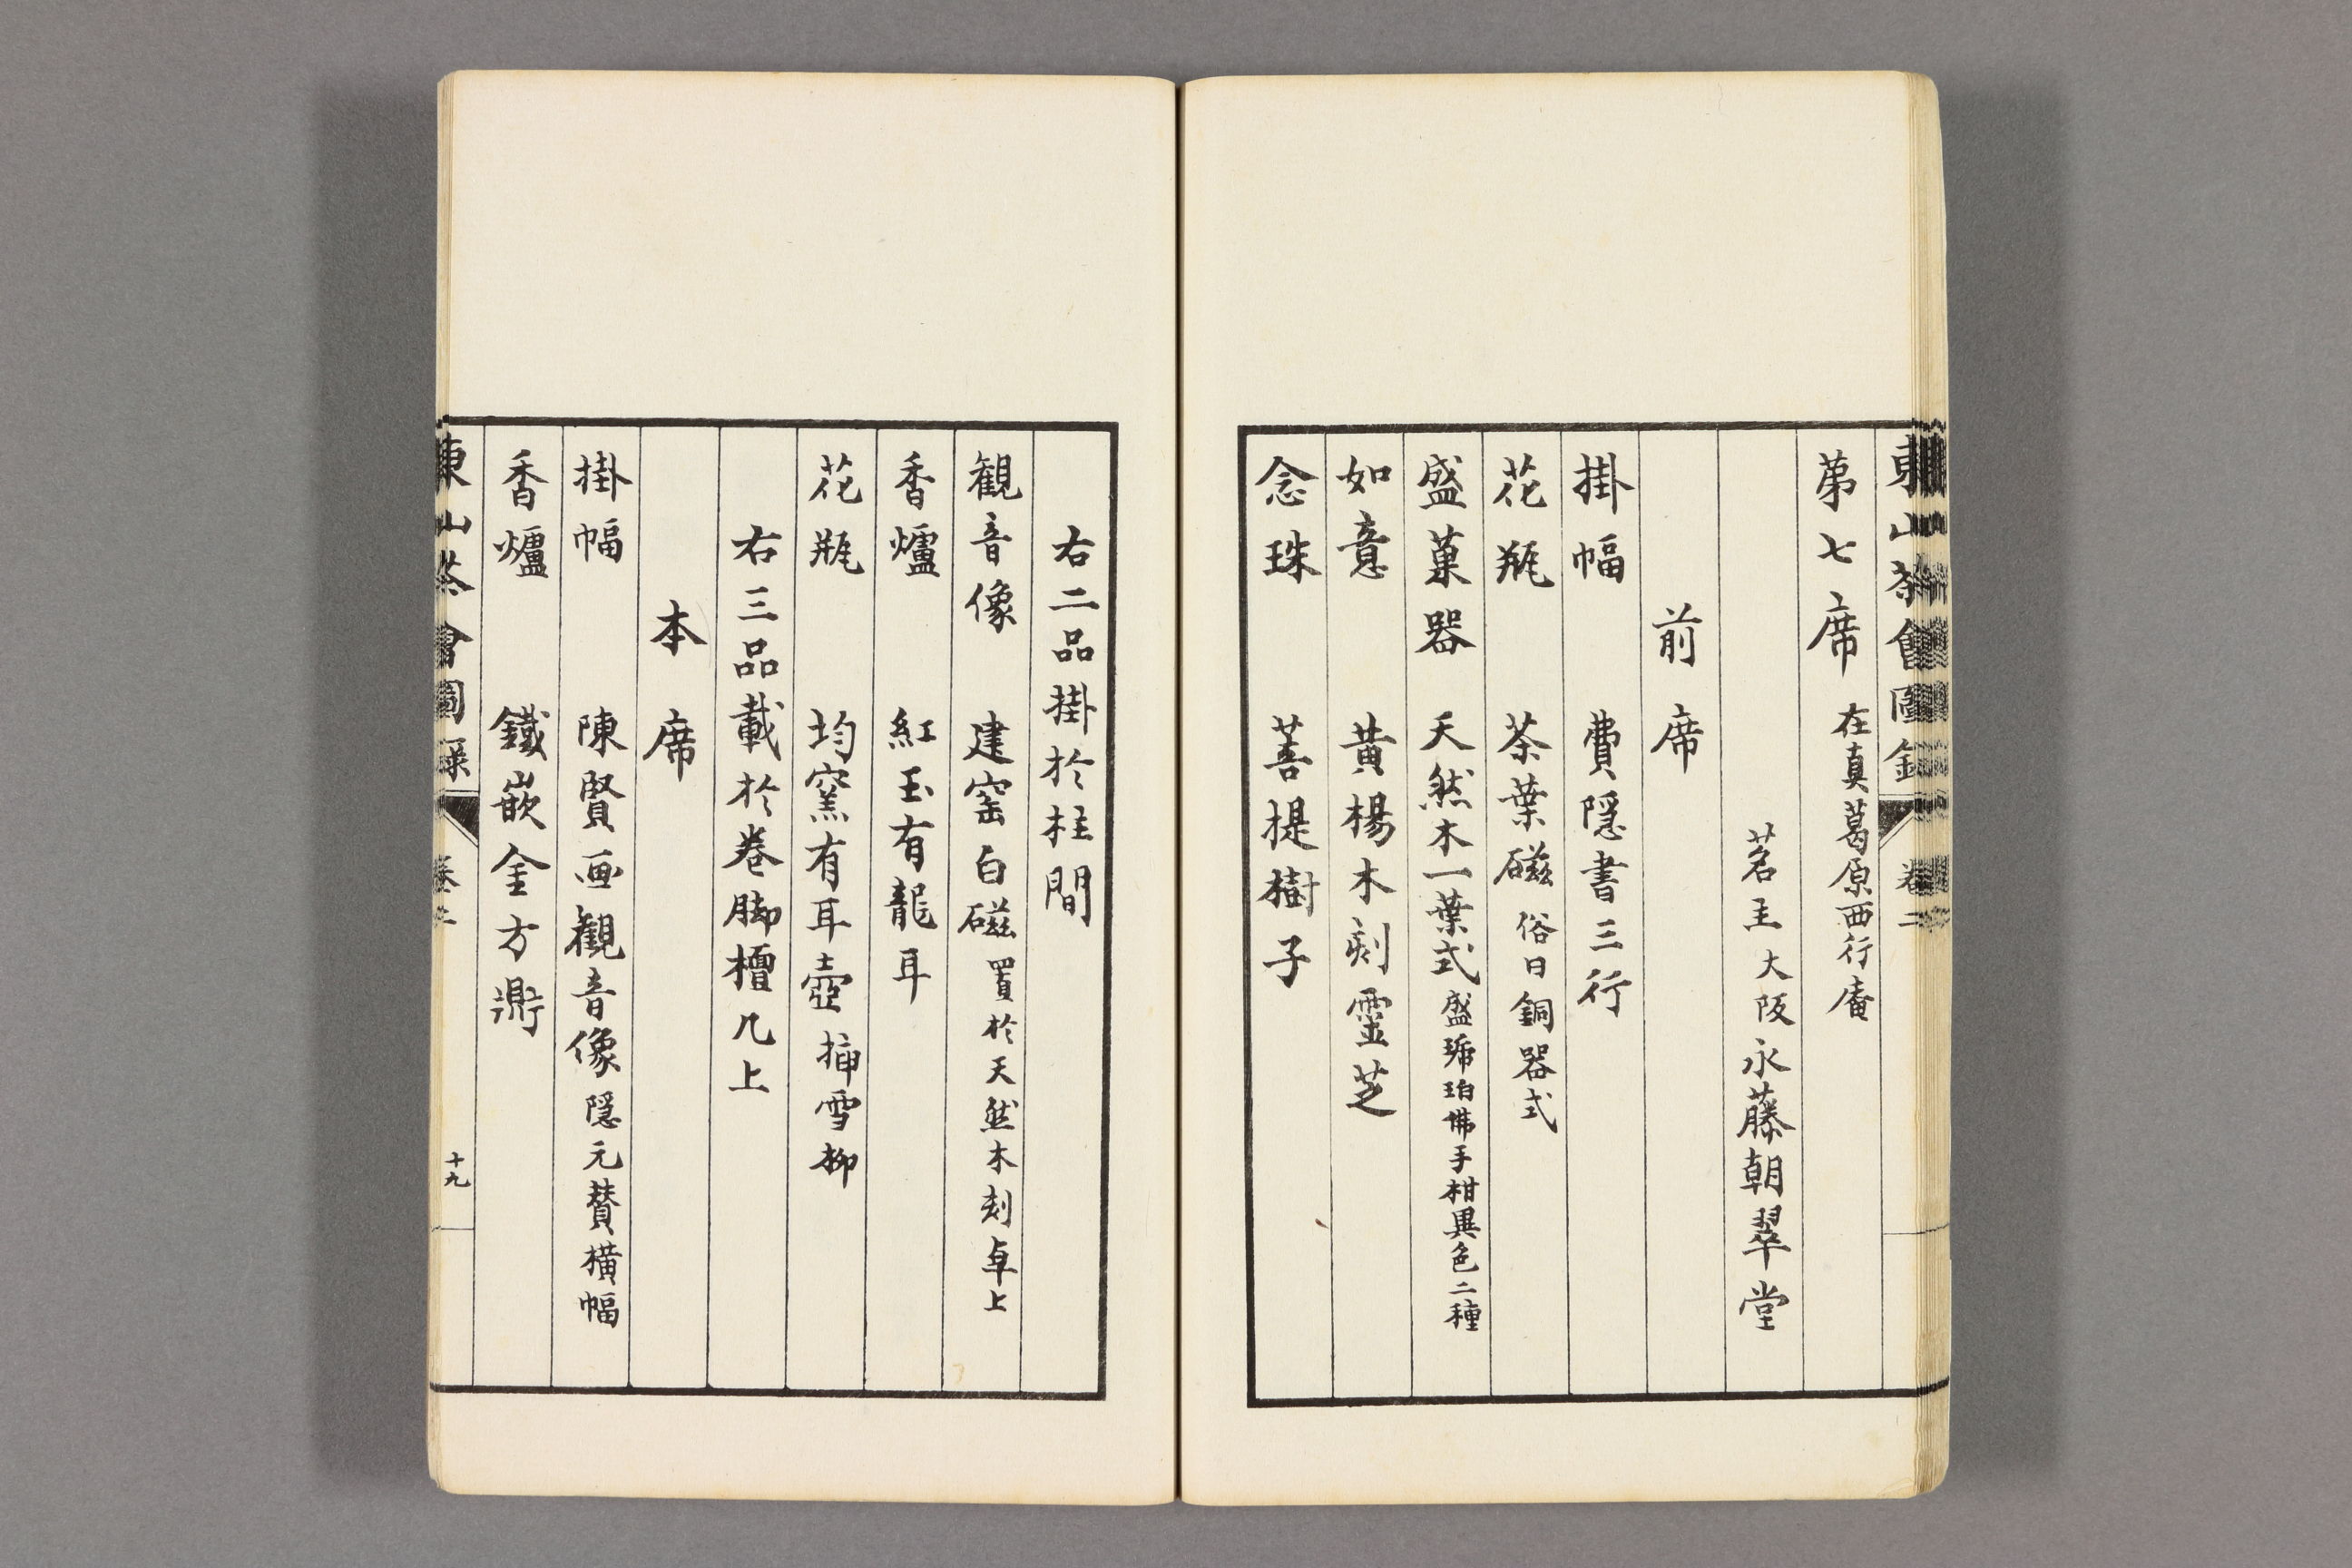 東山茶會圖録 卷二
第七席 在真葛原西行庵
茗主 大阪 永藤朝翠堂
前席
掛幅 費隠書三行
花瓶 茶葉磁 俗曰銅器式
盛菓器 天然木一葉式 盛琥珀佛手柑異色二種
如意 黄楊木刻靈芝
念珠 菩提樹子
右二品掛於柱間
観音像 建窑白磁 置於天然木刻卓上
香爐 紅玉有龍耳
花瓶 均窯有耳壺 挿雪柳
右三品載於卷脚檀几上
本席
掛幅 陳賢画観音像 隠元賛横幅
香爐 鐵嵌金方鼎
東山茶會圖録 卷二 十九